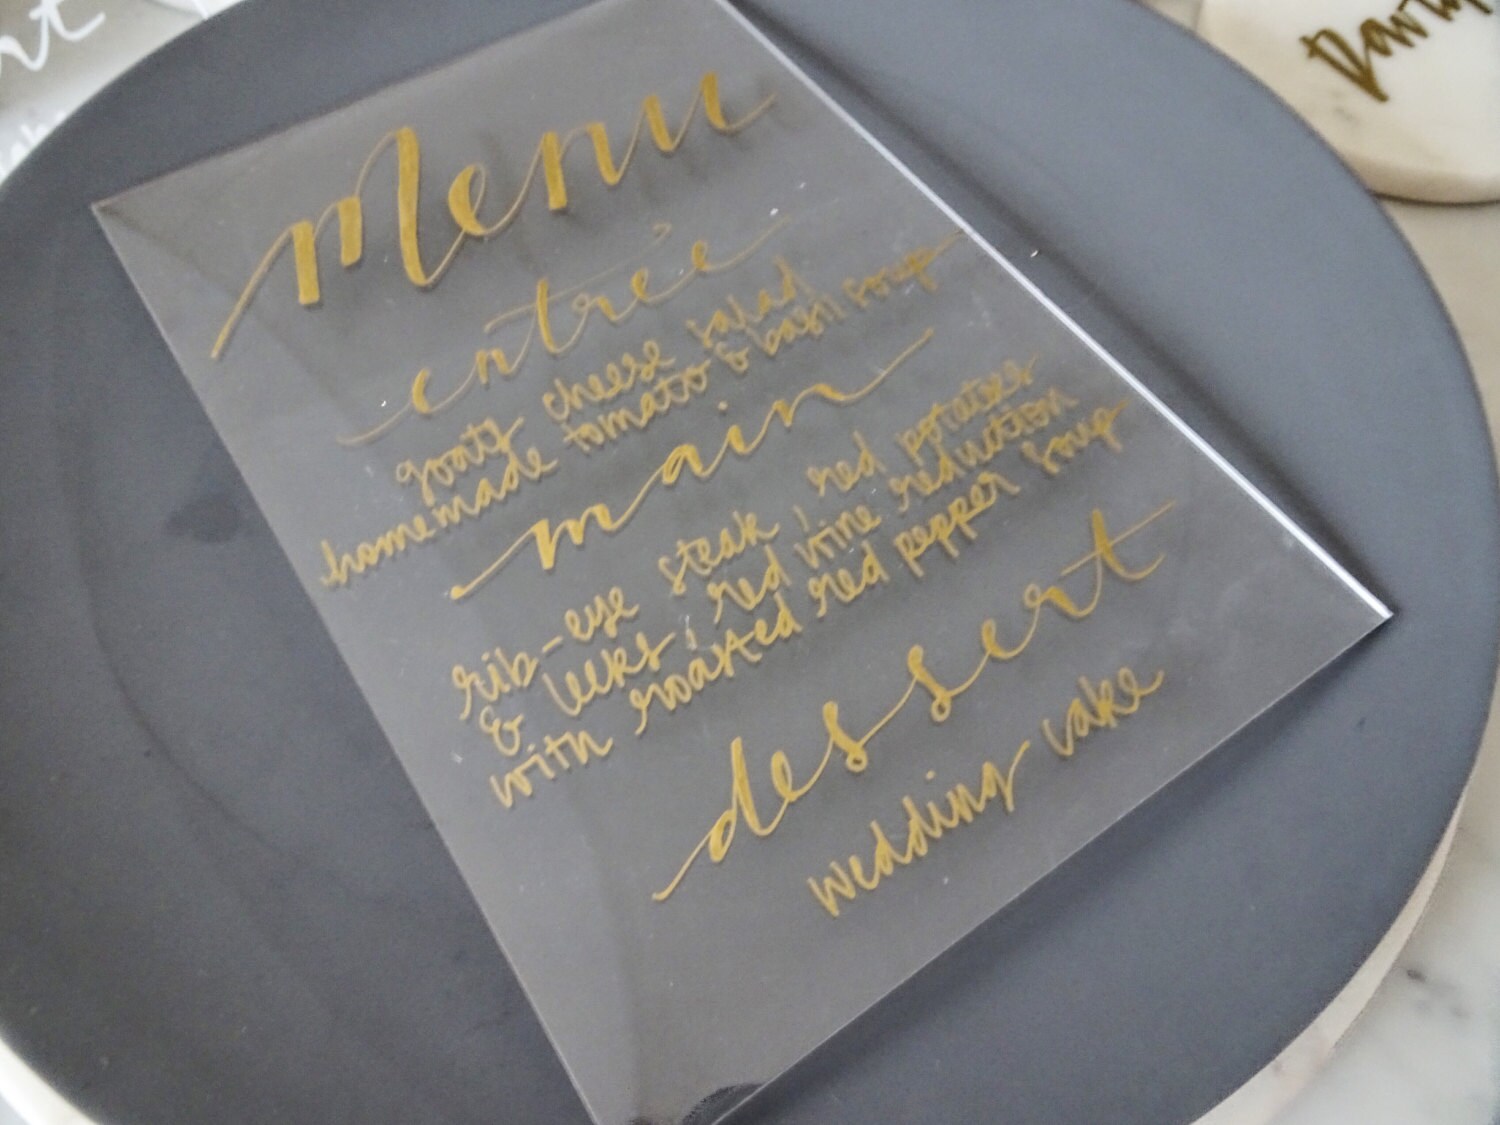 Menu
entrée
goats cheese salad
homemade tomato & basil soup
main
rib-eye steak, red potatoes
& leeks, red wine reduction
with roasted red pepper soup
dessert
wedding cake